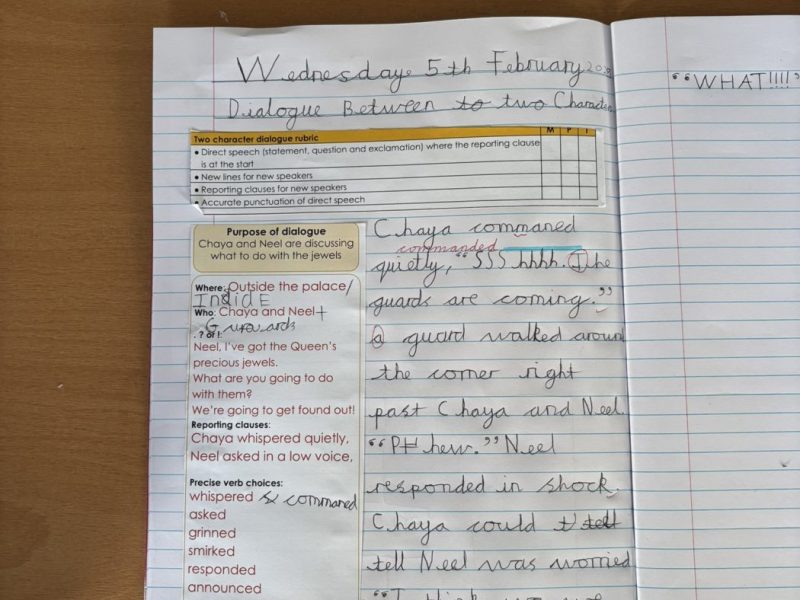 Wednesday 5th February
Dialogue Between to two Character
Two character dialogue rubric M P I
• Direct speech (statement, question and exclamation) where the reporting clause
is at the start
• New lines for new speakers
• Reporting clauses for new speakers
• Accurate punctuation of direct speech
Purpose of dialogue
Chaya and Neel are discussing
what to do with the jewels
Where: Outside the palace/
InsidE
Who: Chaya and Neel +
. ? or !:
Neel, I've got the Queen's
precious jewels.
What are you going to do
with them?
We're going to get found out!
Reporting clauses:
Chaya whispered quietly,
Neel asked in a low voice,
Precise verb choices:
whispered commaned
asked
grinned
smirked
responded
announced
Chaya commaned
commanded
quietly, “SSShhhh. The
guards are coming.”
a guard walked around
the corner right
past Chaya and Neel.
“PHhew.” Neel
responded in shock.
Chaya could t' tell
tell Neel was worried
“I think we
“WHAT!!!!”